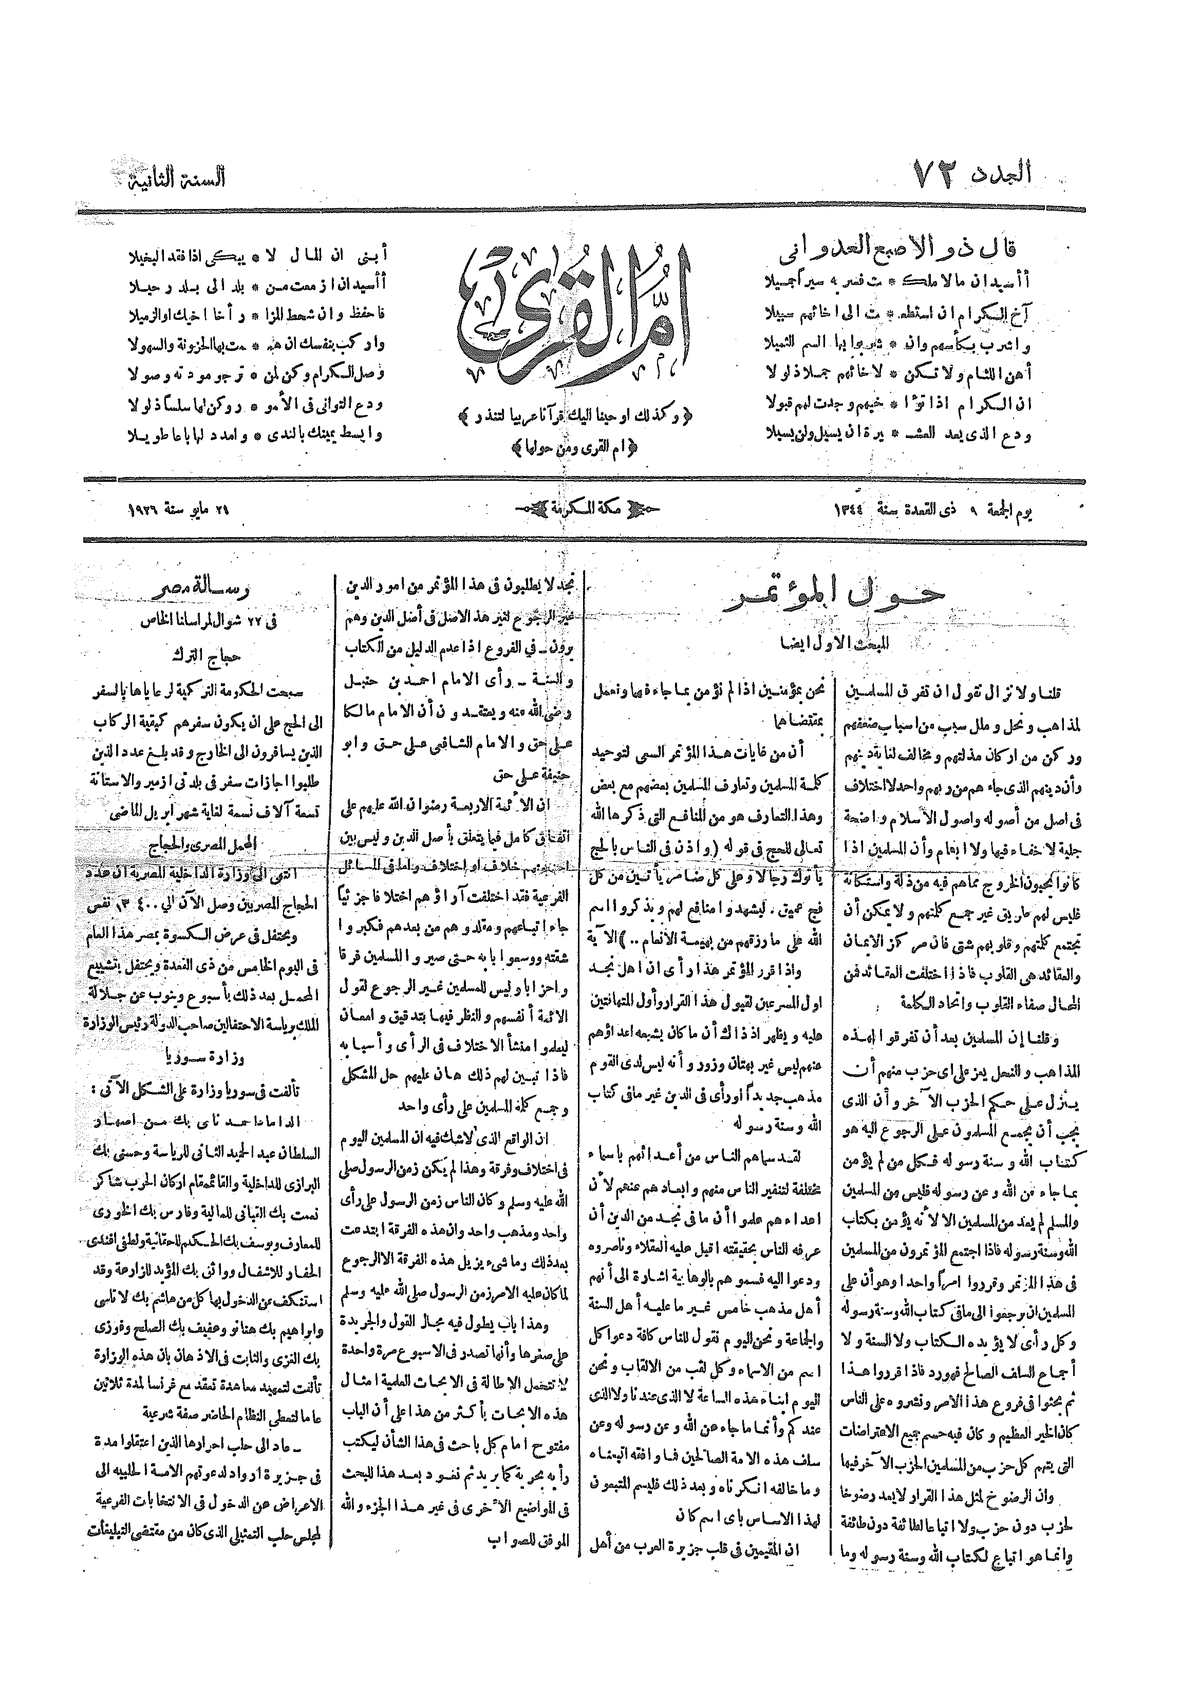 العدد ٧٢
السنة الثانية
قال ذو الاصبع العدواني
أأسيد ان مالا ملكـ * ـت فسر به سيراً جميلا
آخ الكرام ان استطعـ * ـت الى اخائهم سبيلا
واشرب بكأسهم وان * شربوا بها السم الثميلا
أهن اللئام ولا تكن * لاخائهم جملا ذلولا
ان الكرام اذا تؤا * خيهم وجدت لهم قبولا
ودع الذى يعد العشـ * ـيرة ان يسيل ولن يسيلا
ام القرى
﴿ وكذلك اوحينا اليك قرآنا عربيا لتنذر ﴾
﴿ ام القرى ومن حولها ﴾
أبنى ان المال لا * يبكى اذا فقد البخيلا
أأسيد ان ازمعت من * بلد الى بلد رحيلا
فاحفظ وان شحط المزا * ر أخا اخيك او الزميلا
واركب بنفسك ان همـ * ـمت بها الحزونة والسهولا
وصل الكرام وكن لمن * ترجو مودته وصولا
ودع التوانى فى الأمو * ر وكن لها سلساً ذلولا
وابسط يمينك بالندى * وامدد لها باعا طويلا
يوم الجمعة ٩ ذى القعدة سنة ١٣٤٤
مكة المكرمة
٢١ مايو سنة ١٩٢٦
حول المؤتمر
المبحث الاول ايضا
قلنا ولا نزال نقول ان تفرق المسلمين
لمذاهب ونحل وملل سبب من اسباب ضعفهم
وركن من اركان مذلتهم ومخالف لغاية دينهم
وأن دينهم الذى جاءهم من ربهم واحد لا اختلاف
فى اصل من أصوله واصول الأسلام واضحة
جلية لا خفاء فيها ولا ابهام وأن المسلمين اذا
كانوا يحبون الخروج مما هم فيه من ذلة واستكانة
فليس لهم طريق غير جمع كلمتهم ولا يمكن أن
تجتمع كلمتهم وقلوبهم شتى فان مركز الايمان
والعقائد هى القلوب فاذا اختلفت العقائد فمن
المحال صفاء القلوب واتحاد الكلمة
وقلنا إن المسلمين بعد أن تفرقوا لهذه
المذاهب والنحل يعز على اى حزب منهم أن
ينزل على حكم الحزب الآخر وأن الذى
يجب أن يجمع المسلمون على الرجوع اليه هو
كتاب الله وسنة رسوله فكل من لم يؤمن
بما جاء عن الله وعن رسوله فليس من المسلمين
والمسلم لم يعد من المسلمين الا لأنه يؤمن بكتاب
الله وسنة رسوله فاذا اجتمع المؤتمرون من المسلمين
فى هذا المؤتمر وقرروا امراً واحدا وهو أن على
المسلمين ان يرجعوا الى مافى كتاب الله وسنة رسوله
وكل رأى لا يؤيده الكتاب ولا السنة ولا
أجماع السلف الصالح فهو رد فاذا قرروا هذا
ثم بحثوا فى فروع هذا الامر ونشروه على الناس
كان الخير العظيم وكان فيه حسم جميع الاعتراضات
التى يتهم كل حزب من المسلمين الحزب الآخر فيها
وان الرضوخ لمثل هذا القرار لا يعد رضوخا
لحزب دون حزب ولا اتباعا لطائفة دون طائفة
وانما هو اتباع لكتاب الله وسنة رسوله وما
نحن بمؤمنين اذا لم نؤمن بما جاء فيها ونعمل
بمقتضاها
أن من غايات هذا المؤتمر السعى لتوحيد
كلمة المسلمين وتعارف المسلمين بعضهم مع بعض
وهذا التعارف هو من المنافع التى ذكرها الله
تعالى للحج فى قوله ( واذن فى الناس بالحج
يأتوك رجالا وعلى كل ضامر يأتين من كل
فج عميق. ليشهدوا منافع لهم ويذكروا اسم
الله على ما رزقهم من بهيمة الأنعام .. ) الآية
واذا قرر المؤتمر هذا رأى ان اهل نجد
اول المسرعين لقبول هذا القرار وأول المتهافتين
عليه ويظهر اذ ذاك أن ما كان يشيعه اعداؤهم
عنهم ليس غير بهتان وزور وأنه ليس لدى القوم
مذهب جديد أو رأى فى الدين غير مافى كتاب
الله وسنة رسوله
لقد سماهم الناس من أعدائهم باسماء
مختلفة لتنفير الناس منهم وابعادهم عنهم لأن
اعداءهم علموا أن مافى نجد من الدين أن
عرفه الناس بحقيقته اقبل عليه العقلاء وناصروه
ودعوا اليه فسموهم بالوهابية اشارة الى أنهم
أهل مذهب خامس غير ما عليه أهل السنة
والجماعة ونحن اليوم نقول للناس كافة دعوا كل
اسم من الاسماء وكل لقب من الالقاب ونحن
اليوم ابناء هذه الساعة لا الذى عندنا ولا الذى
عندكم وأنما ما جاء عن الله وعن رسوله وعن
سلف هذه الامة الصالحين فما وافقه اتبعناه
وما خالفه انكرناه وبعد ذلك فليسم المتبعون
لهذا الاساس بأى اسم كان
ان المقيمين فى قلب جزيرة العرب من أهل
نجد لا يطلبون فى هذا المؤتمر من امور الدين
غير الرجوع لغير هذ الاصل فى أصل الدين وهم
يرون ـ فى الفروع اذا عدم الدليل من الكتاب
والسنة ـ رأى الامام احمد بن حنبل
رضى الله عنه ويعتقدون أن الامام مالكا
على حق والامام الشافعى على حق وابو
حنيفة على حق
ان الأئمة الاربعة رضوان الله عليهم على
اتفاق كامل فيما يتعلق بأصل الدين وليس بين
خلاف او اختلاف واما فى المسائل
الفرعية فقد اختلفت آراؤهم اختلافا جزئياً
جاء اتباعهم ومقلدوهم من بعدهم فكبروا
شقته ووسعوا بابه حتى صيروا المسلمين فرقا
واحزابا وليس للمسلمين غير الرجوع لقول
الائمة أنفسهم والنظر فيها بتدقيق وامعان
ليعلموا منشأ الاختلاف فى الرأى وأسبابه
فاذا تبين لهم ذلك هان عليهم حل المشكل
وجمع كلمة المسلمين على رأى واحد
ان الواقع الذى لاشك فيه ان المسلمين اليوم
فى اختلاف وفرقة وهذا لم يكن زمن الرسول صلى
الله عليه وسلم وكان الناس زمن الرسول على رأى
واحد ومذهب واحد وان هذه الفرقة ابتدعت
بعد ذلك وما شىء يزيل هذه الفرقة الا الرجوع
لما كان عليه الامر زمن الرسول صلى الله عليه وسلم
وهذا باب يطول فيه مجال القول والجريدة
على صغرها وأنها تصدر فى الاسبوع مرة واحدة
لا تتحمل الإطالة فى الابحاث العلمية امثال
هذه الابحات بأكثر من هذا على أن الباب
مفتوح امام كل باحث فى هذا الشأن ليكتب
رأيه بحرية كما يريد ثم نعود بعد هذا للبحث
فى المواضيع الأخرى فى غير هذا الجزء والله
الموفق للصواب
رسالة مصر
فى ٢٧ شوال لمراسلنا الخاص
حجاج الترك
سمحت الحكومة التركمية لرعاياها بالسفر
الى الحج على ان يكون سفرهم كبقية الركاب
الذين يسافرون الى الخارج وقد بلغ عدد الذين
طلبوا اجازات سفر فى بلدتى ازمير والاستانة
تسعة آلاف نسمة لغاية شهر ابريل الماضى
المحمل المصرى والحجاج
انتهى الى وزارة الداخلية المصرية ان عدد
الحجاج المصريين وصل الآن الى ١٣٤٠٠ نفس
ويحتفل فى عرض الكسوة بمصر هذا العام
فى اليوم الخامس من ذى القعدة ويحتفل بتشييع
المحمل بعد ذلك بأسبوع وينوب عن جلالة
الملك برياسة الاحتفالين صاحب الدولة رئيس الوزارة
وزارة سوريا
تألفت فى سوريا وزارة على الشكل الآتى :
الداماد احمد نامى بك من اصهار
السلطان عبد الحميد الثانى للرياسة وحسنى بك
البرازى للداخلية والقائمقام اركان الحرب شاكر
نعمت بك القبانى للمالية وفارس بك الخورى
للمعارف ويوسف بك الحكيم للحقانية ولطفى افندى
الحفار للاشغال وواثق بك المؤيد للزارعة وقد
استنكف عن الدخول بها كل من هاشم بك الاتاسى
وابراهيم بك هنانو وعفيف بك الصلح وفوزى
بك الغزى والثابت فى الاذهان بان هذه الوزارة
تألفت لتمهيد معاهدة تعقد مع فرنسا لمدة ثلاثين
عاما لتعطى النظام الحاضر صفة شرعية
ـ عاد الى حلب احرارها الذين اعتقلوا مدة
فى جزيرة ارواد لدعوتهم الامة الحلبيه الى
الاعراض عن الدخول فى الانتخابات الفرعية
لمجلس حلب التمثيلى الذى كان من مقتضى التبليغات